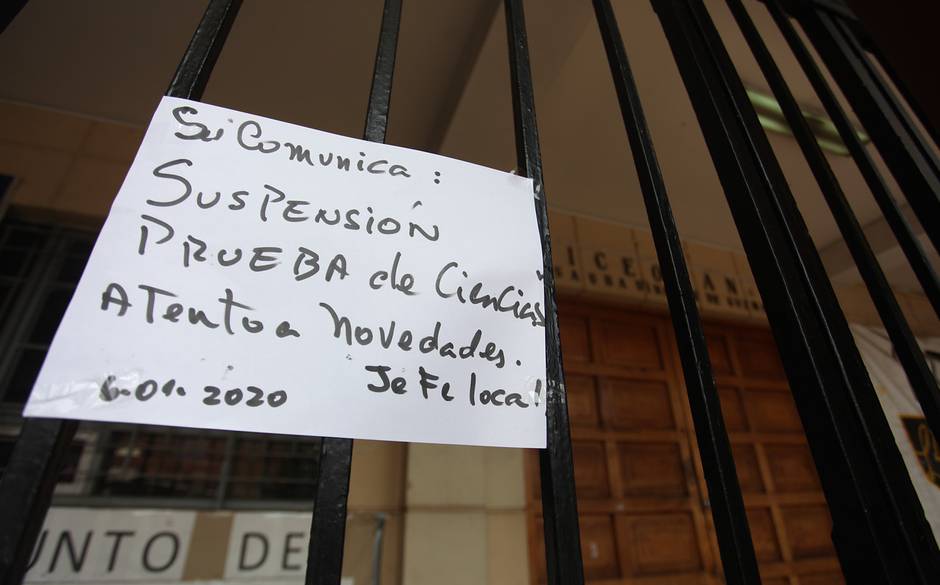 Se Comunica:
SUSPENSIÓN
PRUEBA de Ciencias
ATento a Novedades.
6.01.2020 JeFe local
UNTO DE